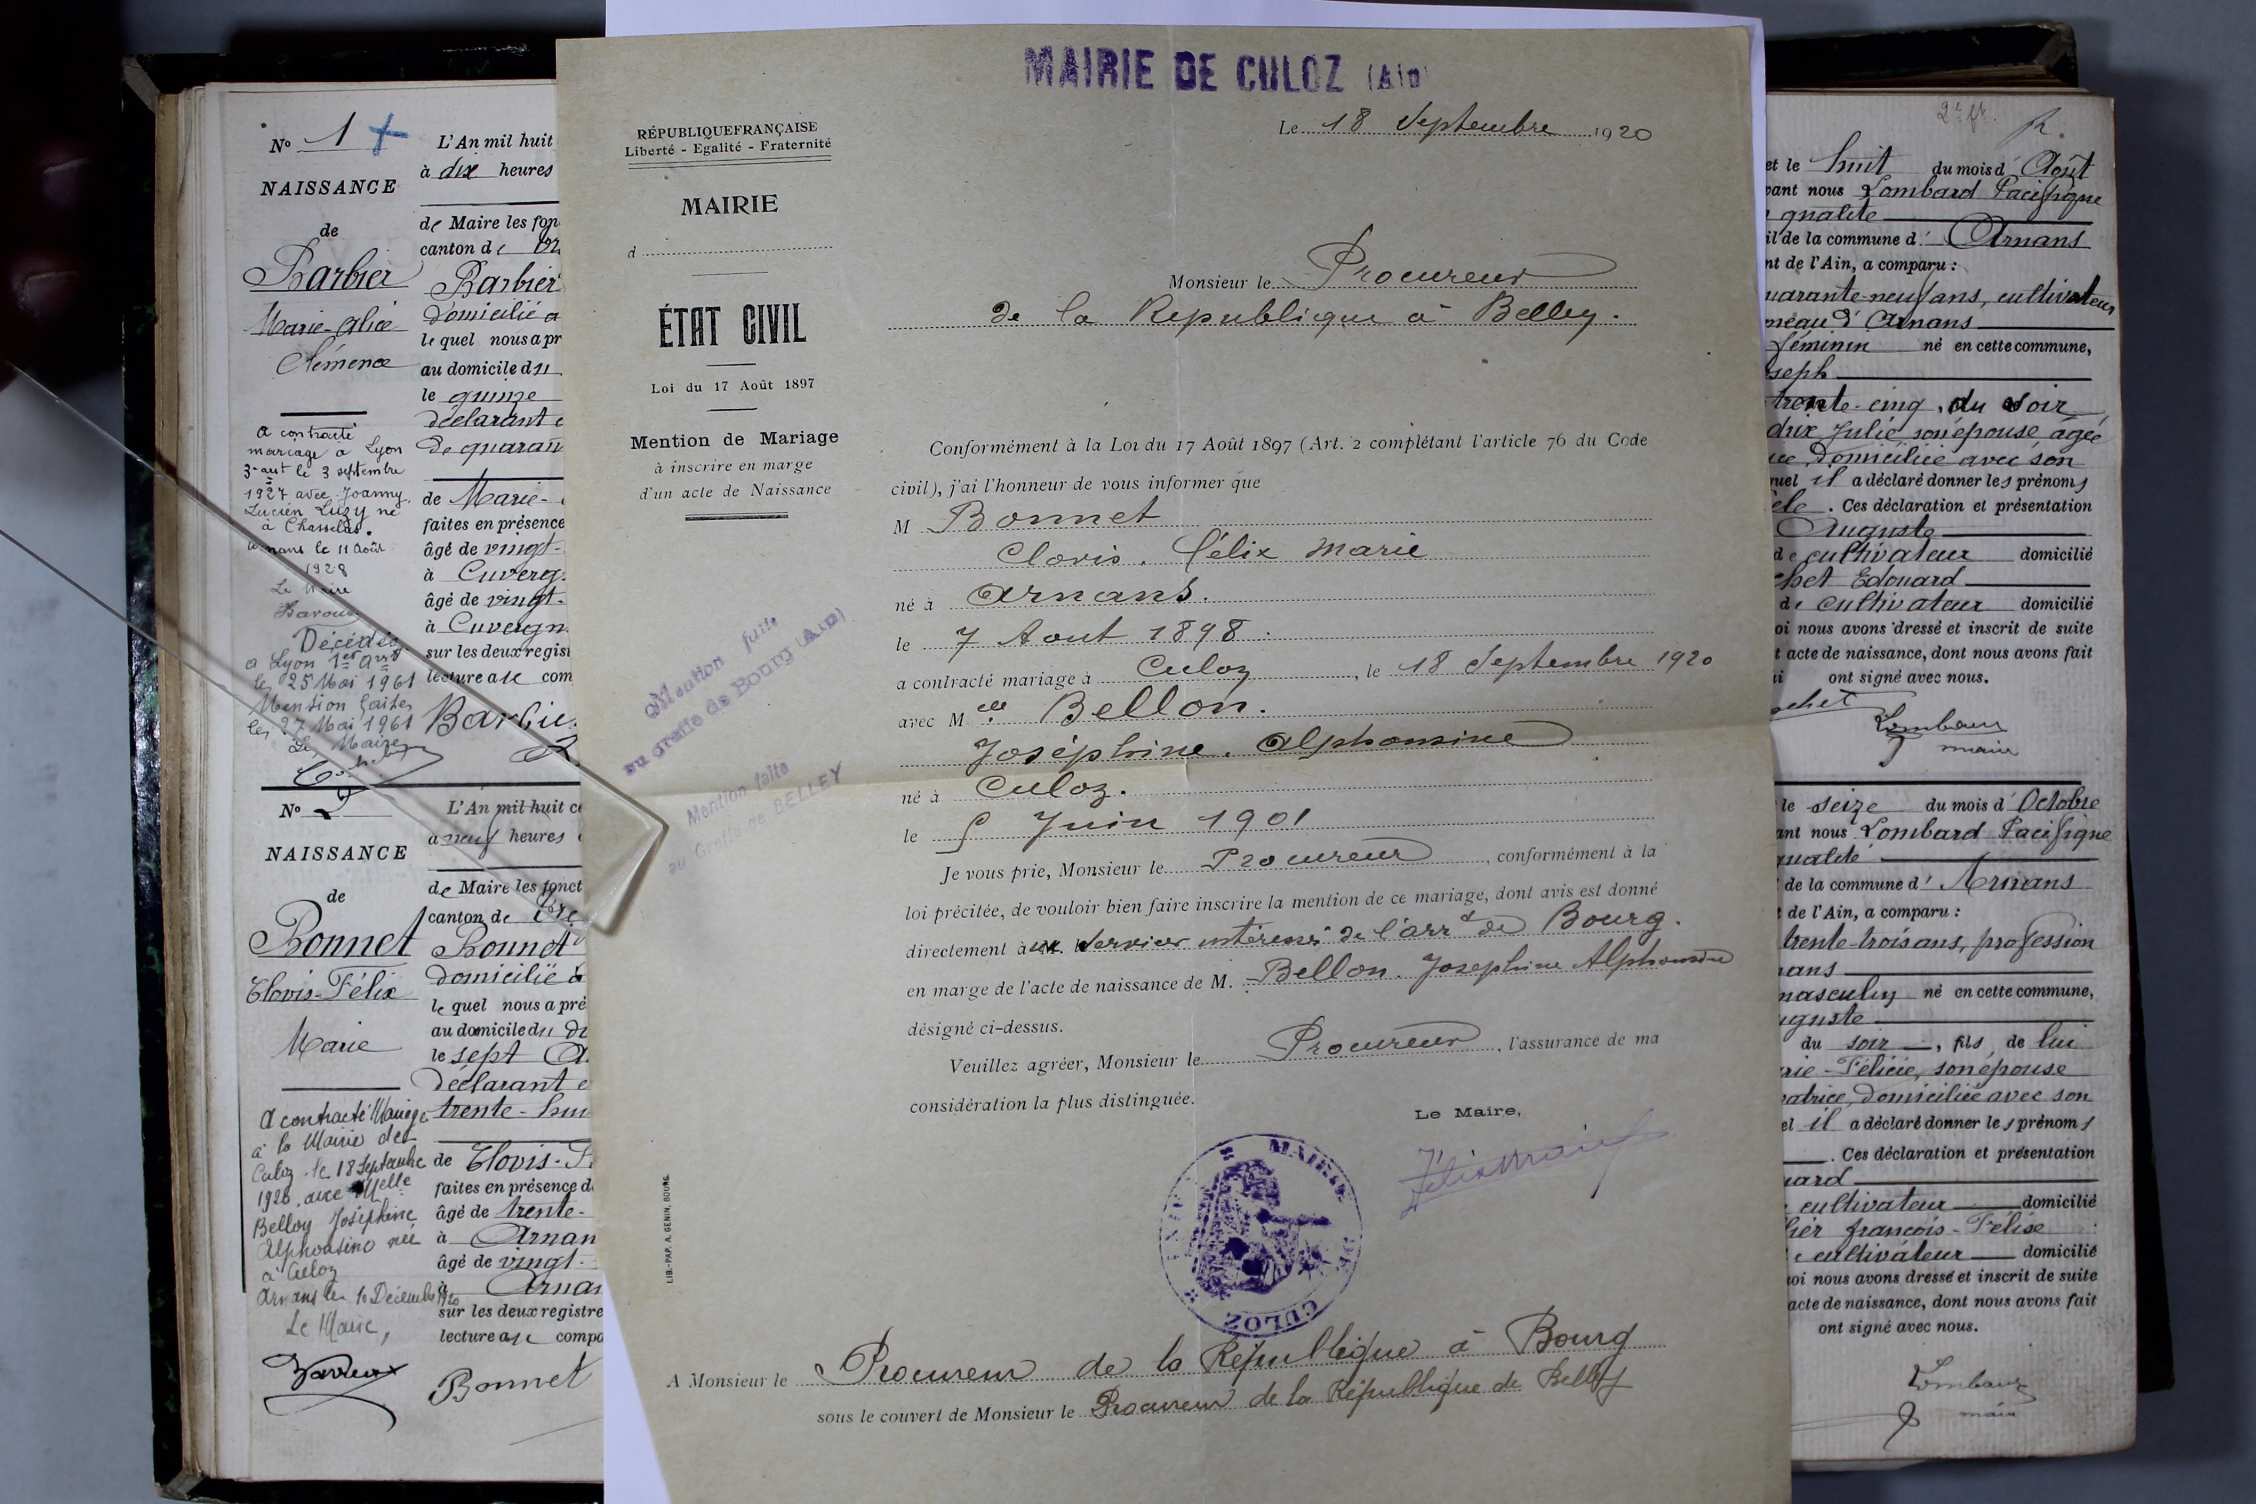 MAIRIE DE CULOZ (Ain)
Le 18 Septembre 1920
RÉPUBLIQUE FRANÇAISE
Liberté - Egalité - Fraternité
MAIRIE
d
ÉTAT CIVIL
Loi du 17 Août 1897
Mention de Mariage
à inscrire en marge
d'un acte de Naissance
Monsieur le Procureur
de la Republique à Belley.
Conformément à la Loi du 17 Août 1897 (Art. 2 complétant l'article 76 du Code
civil), j'ai l'honneur de vous informer que
M Bonnet
Clovis. Félix Marie
né à Arnans.
le 7 Aout 1898.
a contracté mariage à Culoz, le 18 Septembre 1920
avec M elle Bellon.
Joséphine. Alphonsine
né à Culoz.
le 5 Juin 1901
Je vous prie, Monsieur le Procureur, conformément à la
loi précitée, de vouloir bien faire inscrire la mention de ce mariage, dont avis est donné
directement à Services intéressés de l'arrt de Bourg.
en marge de l'acte de naissance de M. Bellon. Josephine Alphonsine
désigné ci-dessus.
Veuillez agréer, Monsieur le Procureur, l'assurance de ma
considération la plus distinguée.
Le Maire,
MAIRIE DE CULOZ
A Monsieur le Procureur de la République à Bourg
sous le couvert de Monsieur le Procureur de la République de Belley
Mention faite
au Greffe de Bourg (Ain)
Mention faite
au Greffe de BELLEY
LIB.-PAP. A. GENIN, BOURG
No 1 +
NAISSANCE
de
Barbier
Marie-Alice
Clémence
a contracté
mariage à Lyon
3e art le 3 septembre
1927 avec Joanny
Lucien Luzy né
à Chasselas.
Arnans le 11 Août
1928
Le Maire
Décédée
a Lyon 1er arrt
le 25 Mai 1961
Mention faite
les 27 Mai 1961
Le Maire
L'An mil huit
à dix heures
de Maire les fon
canton de
Barbier
domicilié a
lequel nous a pr
au domicile du
le quinze
déclarant e
de quaran
de Marie-
faites en présence
âgé de vingt-
à Cuverg
âgé de vingt-
à Cuvergn
sur les deux regist
lecture a le com
Barbie
No 2
NAISSANCE
de
Bonnet
Clovis-Félix
Marie
A contracté Mariage
à la Mairie de
Culoz le 18 Septembre
1920 avec Melle
Bellon Joséphine
Alphonsine née
à Culoz
Arnans le 10 Décembre 1920
Le Maire,
L'An mil huit ce
à neuf heures
de Maire les fonct
canton de Tre
Bonnet
domicilié à
lequel nous a pré
au domicile du
le sept A
déclarant e
trente-hui
de Clovis-F
faites en présence d
âgé de trente-
à Arnan
âgé de vingt-
à Arna
sur les deux registre
lecture a le compa
Bonnet
et le huit du mois d'Août
vant nous Lombard Pacifique
qualité
il de la commune d' Arnans
nt de l'Ain, a comparu :
uarante-neuf ans, cultivateur
meau d'Arnans
féminin né en cette commune,
seph
trente-cinq du soir
drix Julie son épouse âgée
domiciliée avec son
quel il a déclaré donner les prénoms
èle. Ces déclaration et présentation
Auguste
de cultivateur domicilié
chet Edouard
de cultivateur domicilié
oi nous avons dressé et inscrit de suite
t acte de naissance, dont nous avons fait
ont signé avec nous.
Lombard
maire
le seize du mois d' Octobre
ant nous Lombard Pacifique
qualité
de la commune d' Arnans
t de l'Ain, a comparu :
trente-trois ans, profession
nans
masculin né en cette commune,
uguste
du soir, fils de lui
rie-Félicie, son épouse
vatrice, domiciliée avec son
el il a déclaré donner les prénoms
. Ces déclaration et présentation
uard
cultivateur domicilié
hier françois-Félise
cultivateur domicilié
oi nous avons dressé et inscrit de suite
acte de naissance, dont nous avons fait
ont signé avec nous.
Lombard
maire